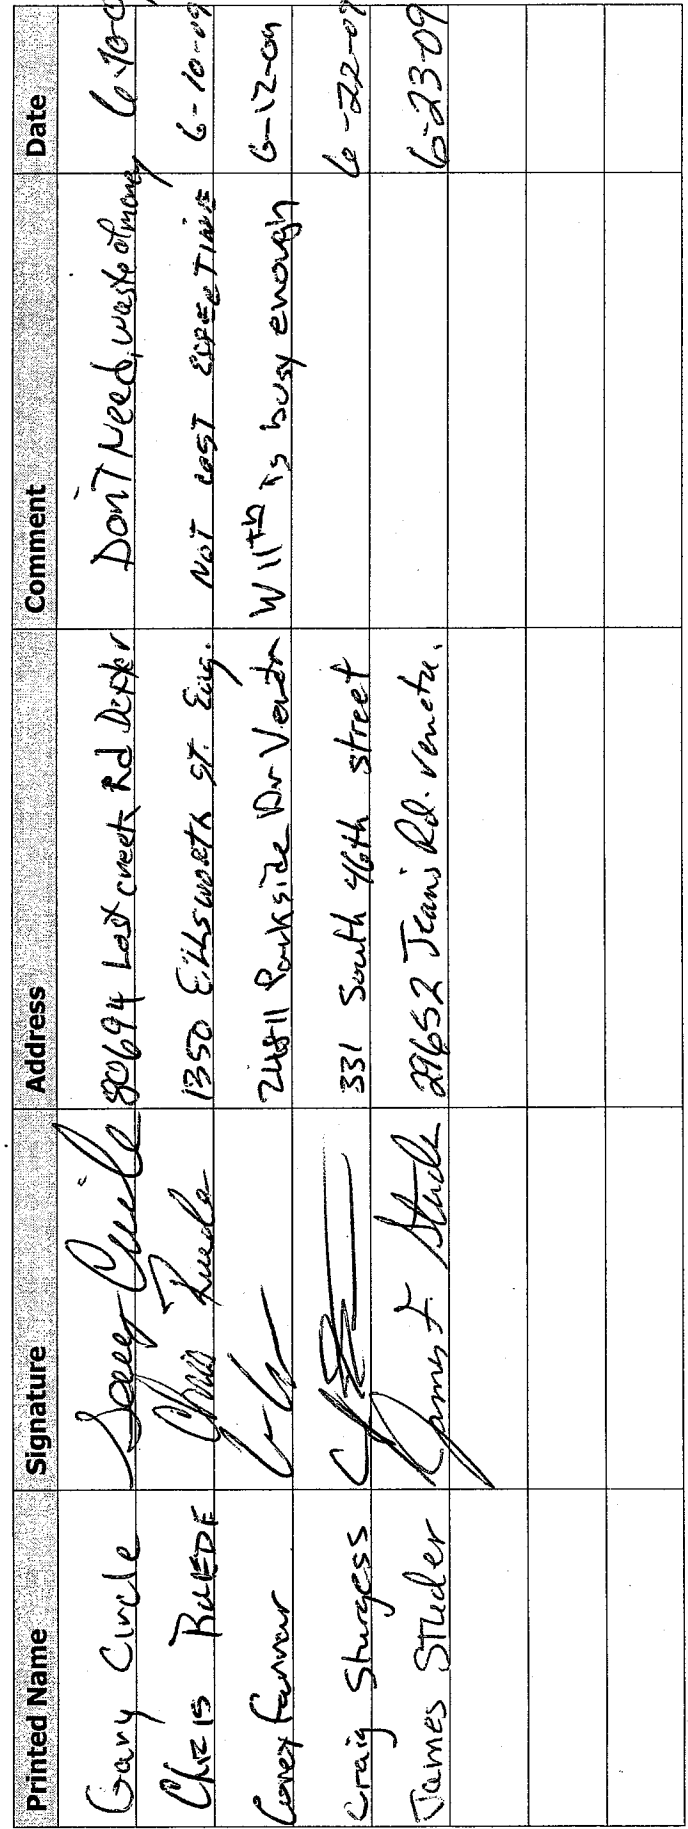 Printed Name Signature Address Comment Date
Gary Circle Gary Circle 80694 Lost creek Rd Dexter Don't Need, waste of money 6-10-0
Chris RUEDE Chris Ruede 1350 Ellsworth St. Eug. NOT COST EFFECTIVE 6-10-09
Corey Farmer 24811 Parkside Dr Veneta W 11th is busy enough 6-12-09
Craig Sturgess 331 South 46th street 6-22-09
James Studer James F. Studer 29652 Jeans Rd. veneta. 6-23-09